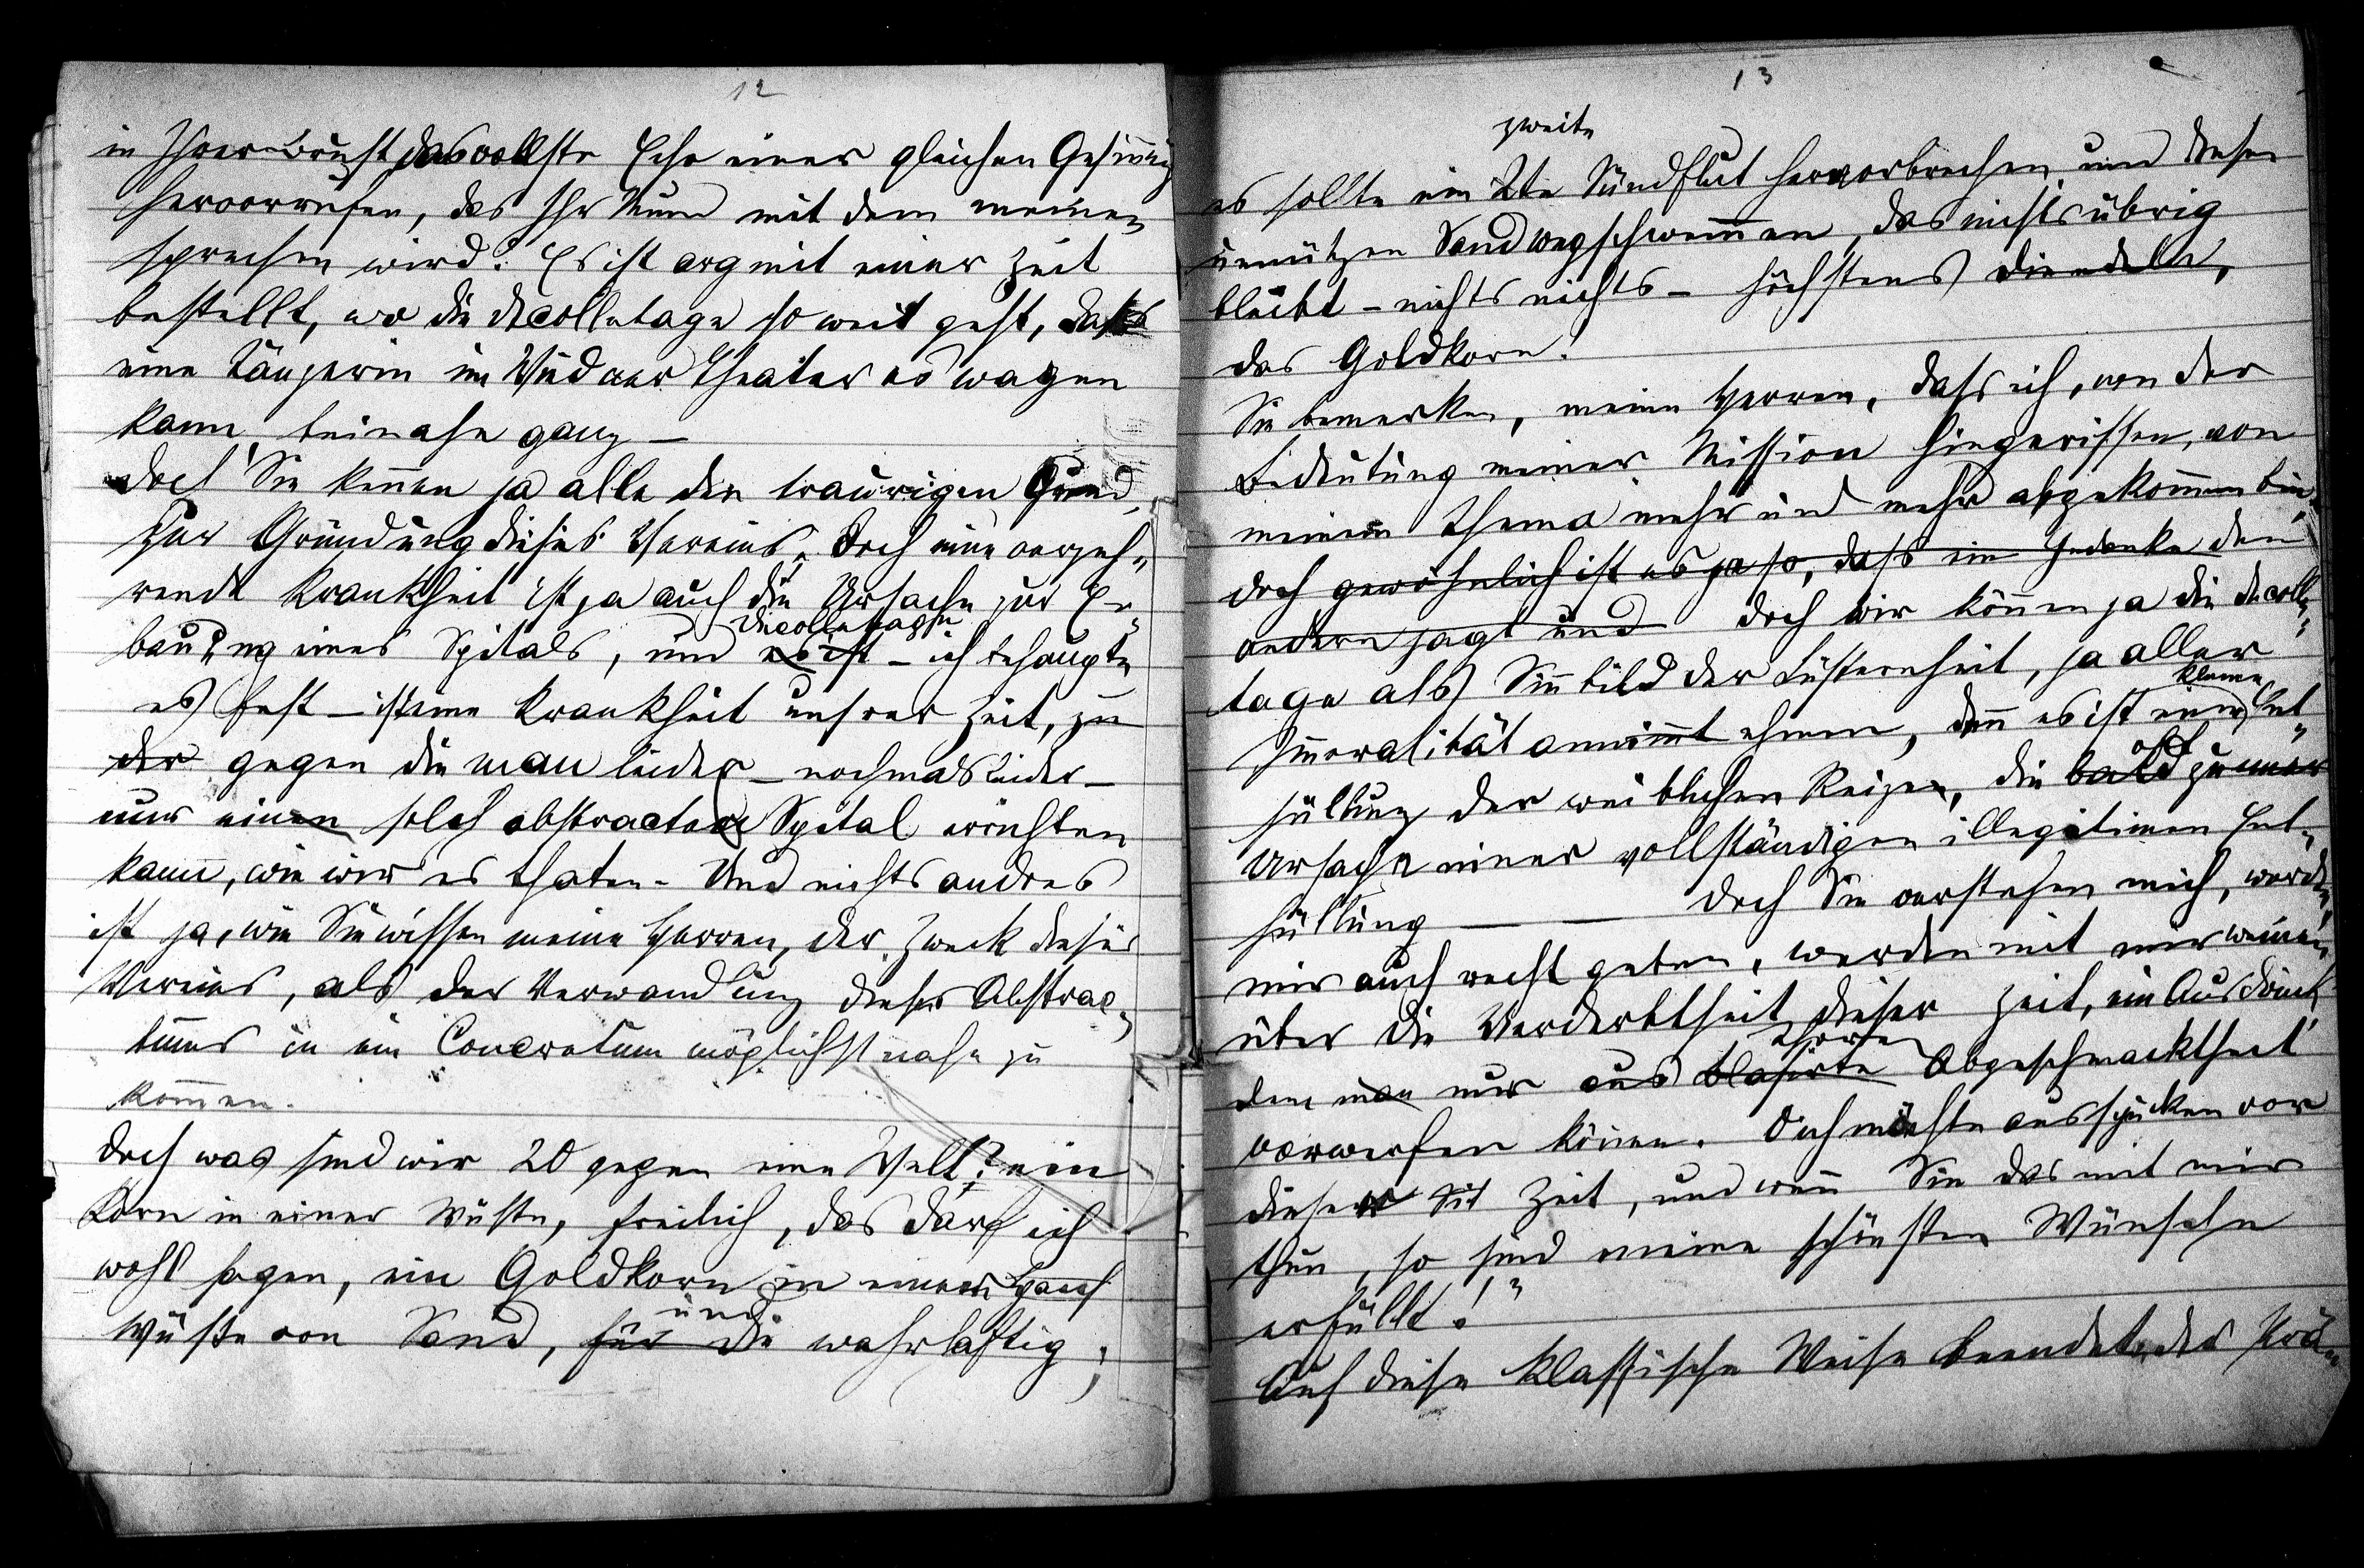 12
in Ihrer Brust das vollste Echo einer gleichen Gesinnung
hervorrufen, das Ihr Mund mit dem meinen
sprechen wird: Es ist arg mit einer Zeit
bestellt, wo die decolletage so weit geht, dass
eine Tänzerin im Wiedner Theater es wagen
kann, beinahe ganz –
doch Sie kennen ja alle den traurigen Grund,
zur Gründung dieses Vereins. Doch eine verzeh„
rende Krankheit ist ja auch die Ursache zur Er„
decolletage
bauung eines Spitals, und es ist – ich behaupte
es fest – ist eine Krankheit unsrer Zeit, zu
der gegen die man leider – nochmals leider –
nur einen solch abstractes Spital errichten
kann, wie wir es thaten. Und nichts andres
ist ja, wie Sie wissen meine Herren, der Zweck dieses
Vereins, als der Verwandlung dieses Abstrac„
tums in ein Concretum möglichst nahe zu
kommen.
Doch was sind wir 20 gegen eine Welt? ein
Korn in einer Wüste, freilich, das darf ich
wohl sagen, ein Goldkorn in einer
und
Wüste von Sand, für die wahrhaftig,
13
zweite
es sollte ein 2te Sündflut hervorbrechen und diesen
unnützen Sand wegschwemmen, das nichts übrig
bleibt – nichts nichts – höchstens die edeln,
das Goldkorn.
Sie bemerken, meine Herren, dass ich, von der
Bedeutung meiner Mission hingerissen, von
meinem Thema mehr und mehr abgekommen bin,
doch gewöhnlich ist es ja so, dass ein Gedanke den
andern jagt und doch wir können ja die decolle„
tage als Sinnbild der Lüsternheit, ja aller
kleine
Immoralität annimmt ehmen, denn es ist eine Ent„
oft
hüllung der weiblichen Reize, die bald zu einer
Ursache einer vollständigen illegitimen Ent„
hüllung — — Doch Sie verstehen mich, werden
mir auch recht geben, werden mit mir weinen,
über die Verderbtheit dieser Zeit, ein Ausdruck,
Thoren
dem man nur aus blasirte Abgeschmacktheit
vorwerfen können. Ich möchte ausspucken vor
dieser Zeit, und wenn Sie das mit mir
thun, so sind meine schönsten Wünsche
erfüllt!“
Auf diese klassische Weise beendete der Prä„